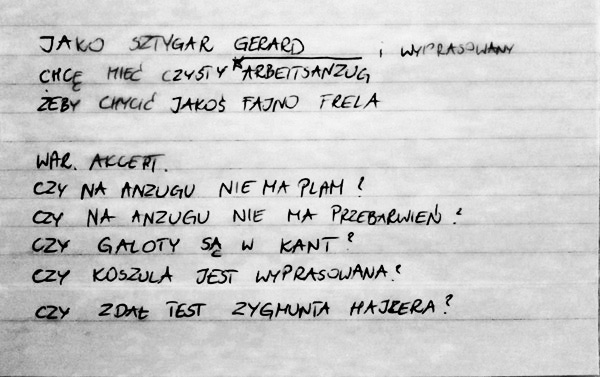 JAKO SZTYGAR GERARD i WYPRASOWANY
CHCĘ MIEĆ CZYSTY ARBEITSANZUG
ŻEBY CHYCIĆ JAKOŚ FAJNO FRELA
WAR. AKCEPT.
CZY NA ANZUGU NIE MA PLAM?
CZY NA ANZUGU NIE MA PRZEBARWIEŃ?
CZY GALOTY SĄ W KANT?
CZY KOSZULA JEST WYPRASOWANA?
CZY ZDAŁ TEST ZYGMUNTA HAJZERA?